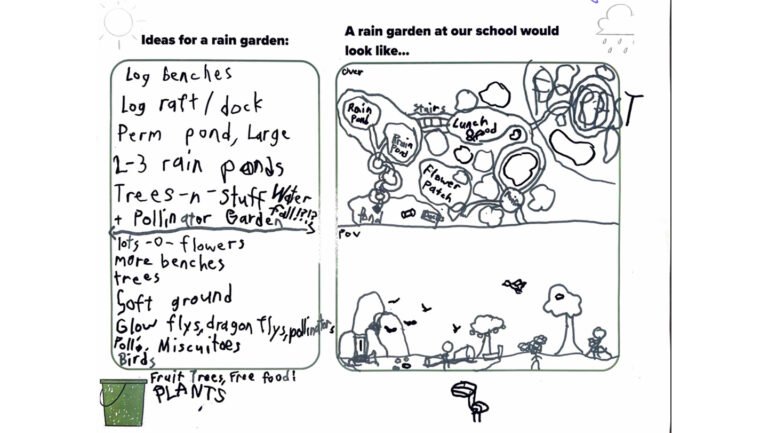 Ideas for a rain garden:
Log benches
Log raft/dock
Perm pond, Large
2-3 rain ponds
Trees-n-Stuff Water
+ Pollinator Garden Fall!?!?
lots-o-flowers
more benches
trees
Soft ground
Glow flys, dragon flys, pollinators
Pollo, Miscuitoes
Birds
Fruit Trees, Free food!
PLANTS
A rain garden at our school would
look like...
Over
Rain
Pond
Stairs
Lunch
& food
Flower
Patch
Rain
POV